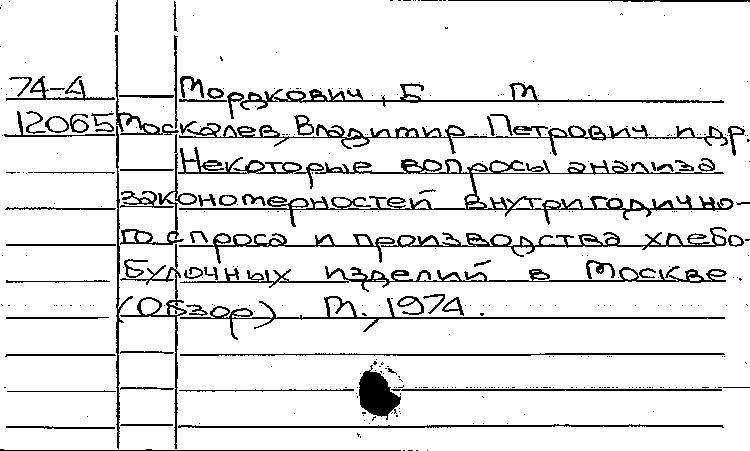 74-4 Мордкович, Б М
12065 Москалев, Владимир Петрович и др.
Некоторые вопросы анализа
закономерностей внутригодично-
го спроса и производства хлебо-
булочных изделий в Москве.
(Обзор). М., 1974.